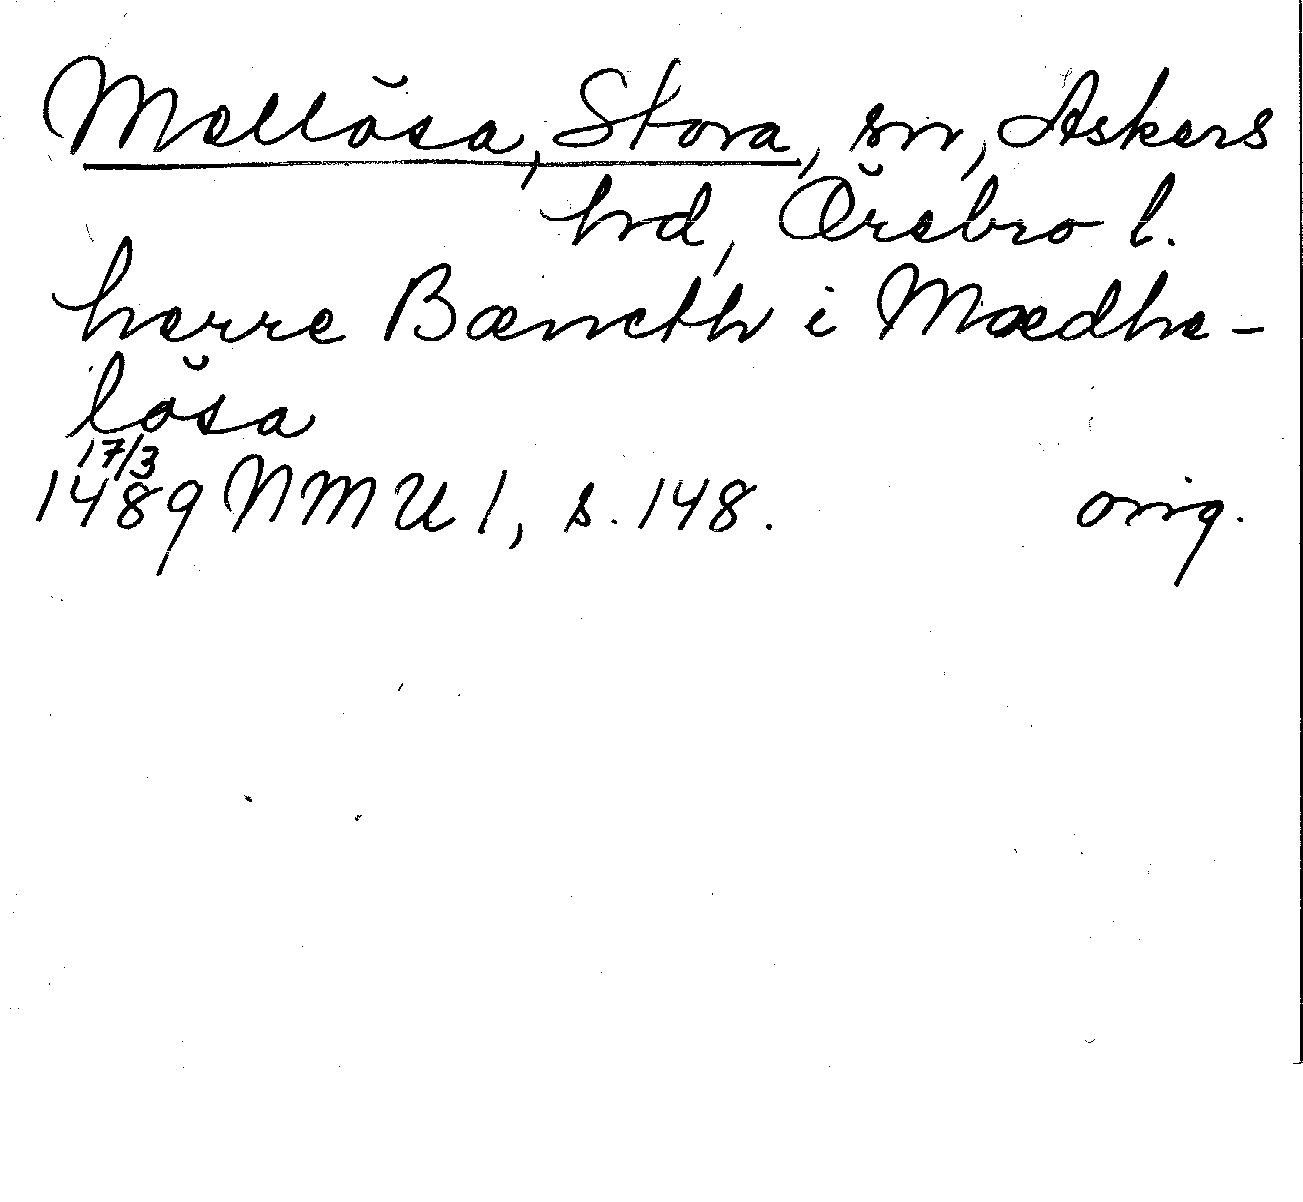 Mellösa, Stora, sn, Askers
hrd, Örebro l.
herre Bæncth i Mædhe-
lösa
17/3
1489 NMU 1, s. 148. orig.